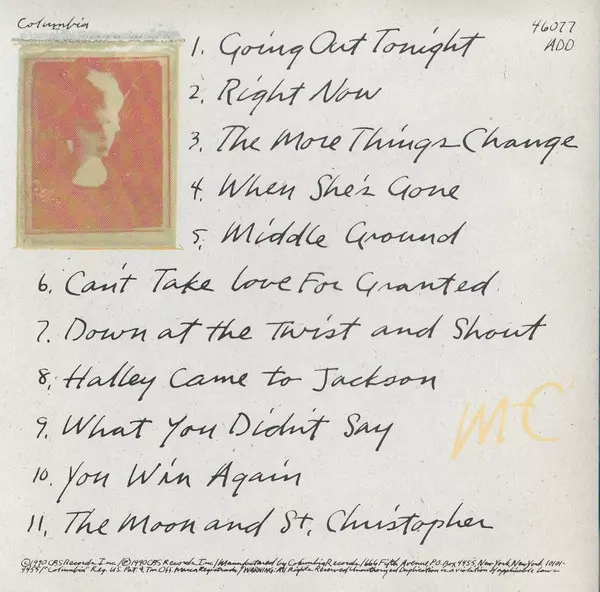 Columbia
46077
ADD
1. Going Out Tonight
2. Right Now
3. The More Things Change
4. When She's Gone
5. Middle Ground
6. Can't Take Love For Granted
7. Down at the Twist and Shout
8. Halley Came to Jackson
MC
9. What You Didn't Say
10. You Win Again
11. The Moon and St. Christopher
©1990 CBS Records Inc./℗1990 CBS Records Inc./Manufactured by Columbia Records/666 Fifth Avenue, P.O. Box 4455, New York, New York 10101-
4455/"Columbia" Reg. U.S. Pat. & Tm. Off. Marca Registrada./WARNING: All Rights Reserved. Unauthorized Duplication is a violation of applicable laws.